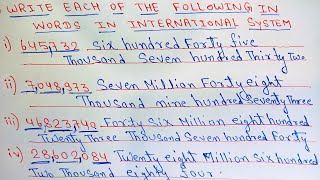 WRITE EACH OF THE FOLLOWING IN
WORDS IN INTERNATIONAL SYSTEM
i) 645,732 Six hundred Forty five
Thousand Seven hundred Thirty Two
ii) 7,048,973 Seven Million Forty eight
Thousand nine hundred Seventy Three
iii) 46,823,740 Forty Six Million eight hundred
Twenty Three Thousand Seven hundred Forty
iv) 28,602,084 Twenty eight Million Six hundred
Two Thousand eighty Four.